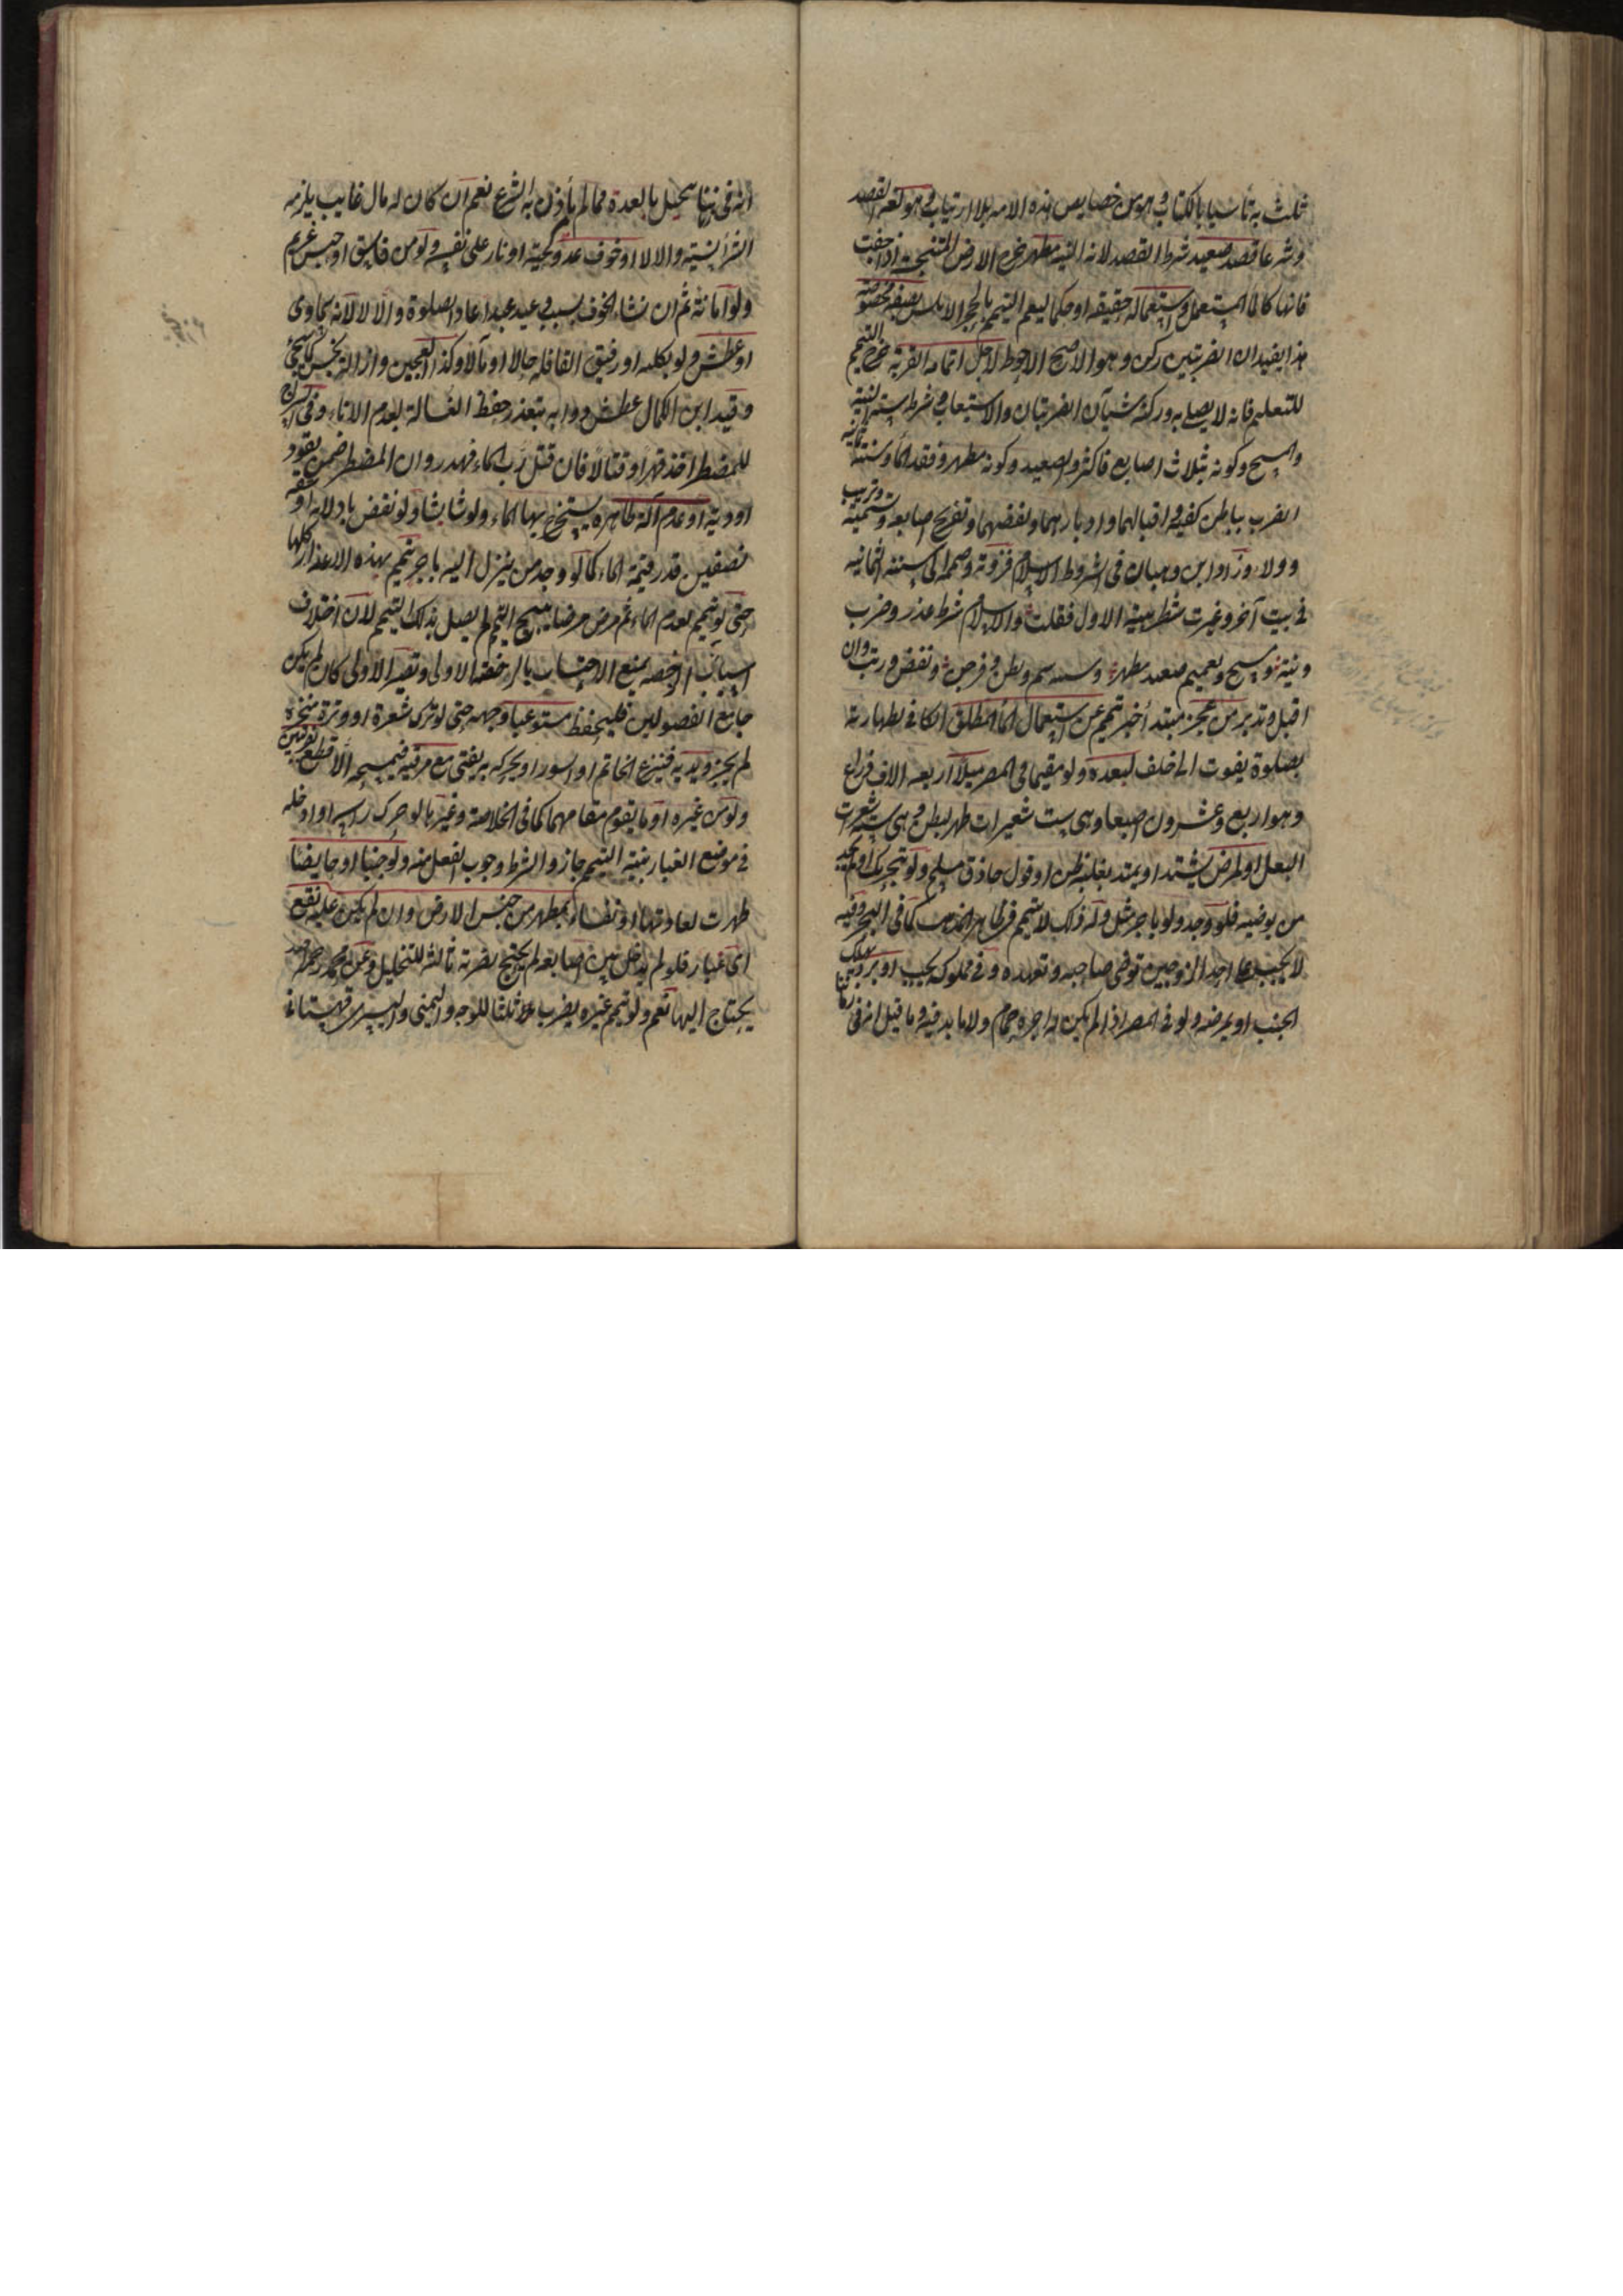 ثلث به تأسيا بالكتاب وهو من خصايص هذه الامه بلا ارتياب هو لغة القصد
وشرعا قصد صعيد شرط القصد لانه النيه مطهر خرج الارض المتنجسة اذا جفت
فانها كالمأ المستعمل واستعماله حقيقه او حكما ليعم التيمم بالحجر الاملس بصفة مخصوصة
هذا يفيد ان الضربتين ركن وهو الاصح الاحوط لاجل اقامه القربة خرج التيمم
للتعليم فانه لا يصلي به وركنه شيآن الضربتان والاستيعاب وشرطه ستة النية
والمسح وكونه بثلاث اصابع فاكثر والصعيد وكونه مطهر وفقد المأ وسننه ثمانية
الضرب بباطن كفيه واقبالهما وادبارهما ونفضهما وتفريج اصابعه وتسمية وترتيب
وولاء وزاد ابن وهبان في الشروط الاسلام فزدته وضممت الى سننه الثمانيه
في بيت آخر وغيرت شطر بيته الاول فقلت والاسلام شرط عذر وضرب
ونية ومسح وتعميم صعيد مطهر وسننه سم وبطن وفرجن ونفض ورتب وان
اقبل وتدبر من عجز مبتدأ خبره تيمم عن استعمال المأ المطلق الكافي لطهارته
لصلوة يفوت الى خلف لبعده ولو مقيما في المصر ميلا اربعه الاف ذراع
وهو اربع وعشرون اصبعا وهي ست شعيرات ظهر لبطن وهي ست شعرات
البغل او لمرض يشتد او يمتد بغلبة ظن او قول حاذق مسلم ولو بتحرك او لم يجد
من يوضيه فلو وجد ولو باجر مثل وله ذلك لا يتيمم في ظاهر المذهب كما في البحر وفيه
لا يجب على احد الزوجين توضي صاحبه وتعهده وفي مملوكه يجب او برد يهلك
الجنب او يمرضه ولو في المصر اذا لم يكن له اجره حمام ولا ما يدفيه وما قيل انه في زماننا
انه في زماننا يتحيل بالعدة فمما لم يأذن به الشرع نعم ان كان له مال غايب يلزمه
الشرأ نسيئة والا لا او خوف عدو كحية او نار على نفسه ولو من فاسق او حبس غريم
ولو امانة ثم ان نشاء الخوف بسبب وعيد عبد اعاد الصلوة والا لا لانه سماوى
او عطش ولو بكلبه او رفيق القافله حالا او مآلا وكذا العجين وازالة نجس كما سيجئ
وقيد ابن الكمال عطش دوابه بتعذر حفظ الغسالة بعدم الاناء وفي السراج
للمضطر اخذه قهرا وقتاله فان قتل رب الماء فهدر وان المضطر ضمن بقود
او دية او عدم آلة طاهره يستخرج بها الماء ولو شاشا ولو نقض بادلائه او شقه
نصفين قدر قيمة الماء كما لو وجد من ينزل اليه باجر تيمم بهذه الاعذار كلها
حتى لو تيمم لعدم الماء ثم مرض مرضا يبيح التيمم لم يصل بذلك التيمم لان اختلاف
اسباب الرخصه يمنع الاحتساب بالرخصة الاولى وتصير الاولى كان لم يكن
جامع الفصولين فليحفظ مستوعبا وجهه حتى لو ترك شعرة او وترة منخره
لم يجز ويديه فينزع الخاتم او السوار او يحركه به يفتى مع مرفقيه فيمسحه الاقطع
ولو من غيره او ما يقوم مقامهما كما في الخلاصة وغيرها لو حرك راسه او ادخله
في موضع الغبار بنية التيمم جاز والشرط وجوب الفعل منه ولو جنبا او حايضا
طهرت لعادتها او نفساء بمطهر من جنس الارض وان لم يكن عليه نقع
اى غبار فلو لم يدخل بين اصابعه لم يحتج لضربة ثالثة للتخليل وعن محمد رحمه الله
يحتاج اليها نعم ولو تيمم غيره يضرب ثلاثا للوجه واليمنى واليسرى قهستاني